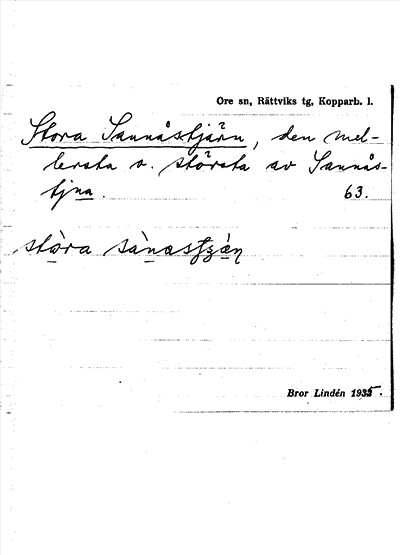 Ore sn, Rättviks tg, Kopparb. l.
Stora Sannåstjärn, den mel-
lersta o. största av Sannås-
tjna. 63.
stòra sànæstjæ̀n
Bror Lindén 1935.